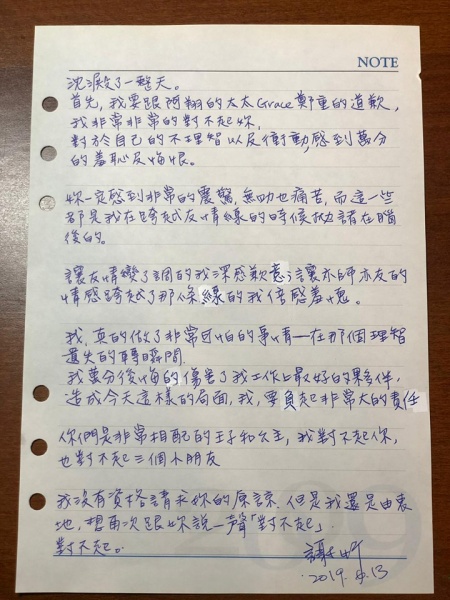 NOTE
沈澱了一整天。
首先,我要跟阿翔的太太Grace鄭重的道歉,
我非常非常的對不起妳,
對於自己的不理智以及衝動,感到萬分
的羞恥及悔恨。
妳一定感到非常的震驚,無助也痛苦,而這一些
都是我在跨越友情線的時候拋諸在腦
後的。
讓友情變了調的我深感歉意;讓亦師亦友的
情感跨越了那條線的我倍感羞愧。
我,真的做了非常可怕的事情—在那個理智
喪失的瞬間
我萬分後悔的傷害了我工作上最好的夥伴,
造成今天這樣的局面,我,要負起非常大的責任
你們是非常相配的王子和公主,我對不起你,
也對不起三個小朋友
我沒有資格請求妳的原諒,但是我還是由衷
地,想再次跟妳說一聲「對不起」.
對不起。
2019. 8.13